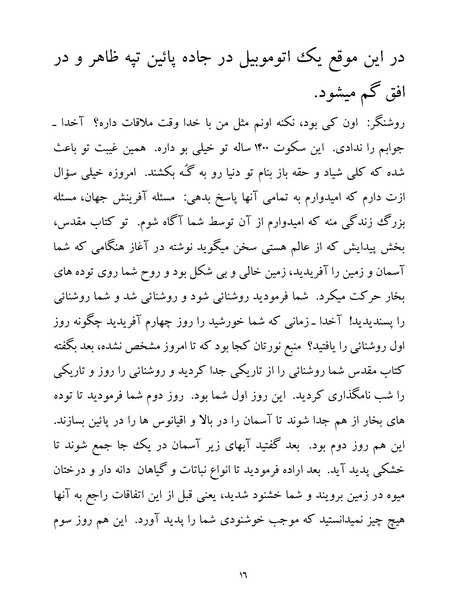 در این موقع یک اتوموبیل در جاده پائین تپه ظاهر و در
افق گم میشود.
روشنگر: اون کی بود، نکنه اونم مثل من با خدا وقت ملاقات داره؟ آخدا ـ
جوابم را ندادی. این سکوت ۱۴۰۰ ساله تو خیلی بو داره. همین غیبت تو باعث
شده که کلی شیاد و حقه باز بنام تو دنیا رو به گُه بکشند. امروزه خیلی سؤال
ازت دارم که امیدوارم به تمامی آنها پاسخ بدهی: مسئله آفرینش جهان، مسئله
بزرگ زندگی منه که امیدوارم از آن توسط شما آگاه شوم. تو کتاب مقدس،
بخش پیدایش که از عالم هستی سخن میگوید نوشته در آغاز هنگامی که شما
آسمان و زمین را آفریدید، زمین خالی و بی شکل بود و روح شما روی توده های
بخار حرکت میکرد. شما فرمودید روشنائی شود و روشنائی شد و شما روشنائی
را پسندیدید! آخدا ـ زمانی که شما خورشید را روز چهارم آفریدید چگونه روز
اول روشنائی را یافتید؟ منبع نورتان کجا بود که تا امروز مشخص نشده، بعد بگفته
کتاب مقدس شما روشنائی را از تاریکی جدا کردید و روشنائی را روز و تاریکی
را شب نامگذاری کردید. این روز اول شما بود. روز دوم شما فرمودید تا توده
های بخار از هم جدا شوند تا آسمان را در بالا و اقیانوس ها را در پائین بسازند.
این هم روز دوم بود. بعد گفتید آبهای زیر آسمان در یک جا جمع شوند تا
خشکی پدید آید. بعد اراده فرمودید تا انواع نباتات و گیاهان دانه دار و درختان
میوه در زمین برویند و شما خشنود شدید، یعنی قبل از این اتفاقات راجع به آنها
هیچ چیز نمیدانستید که موجب خوشنودی شما را پدید آورد. این هم روز سوم
۱۶